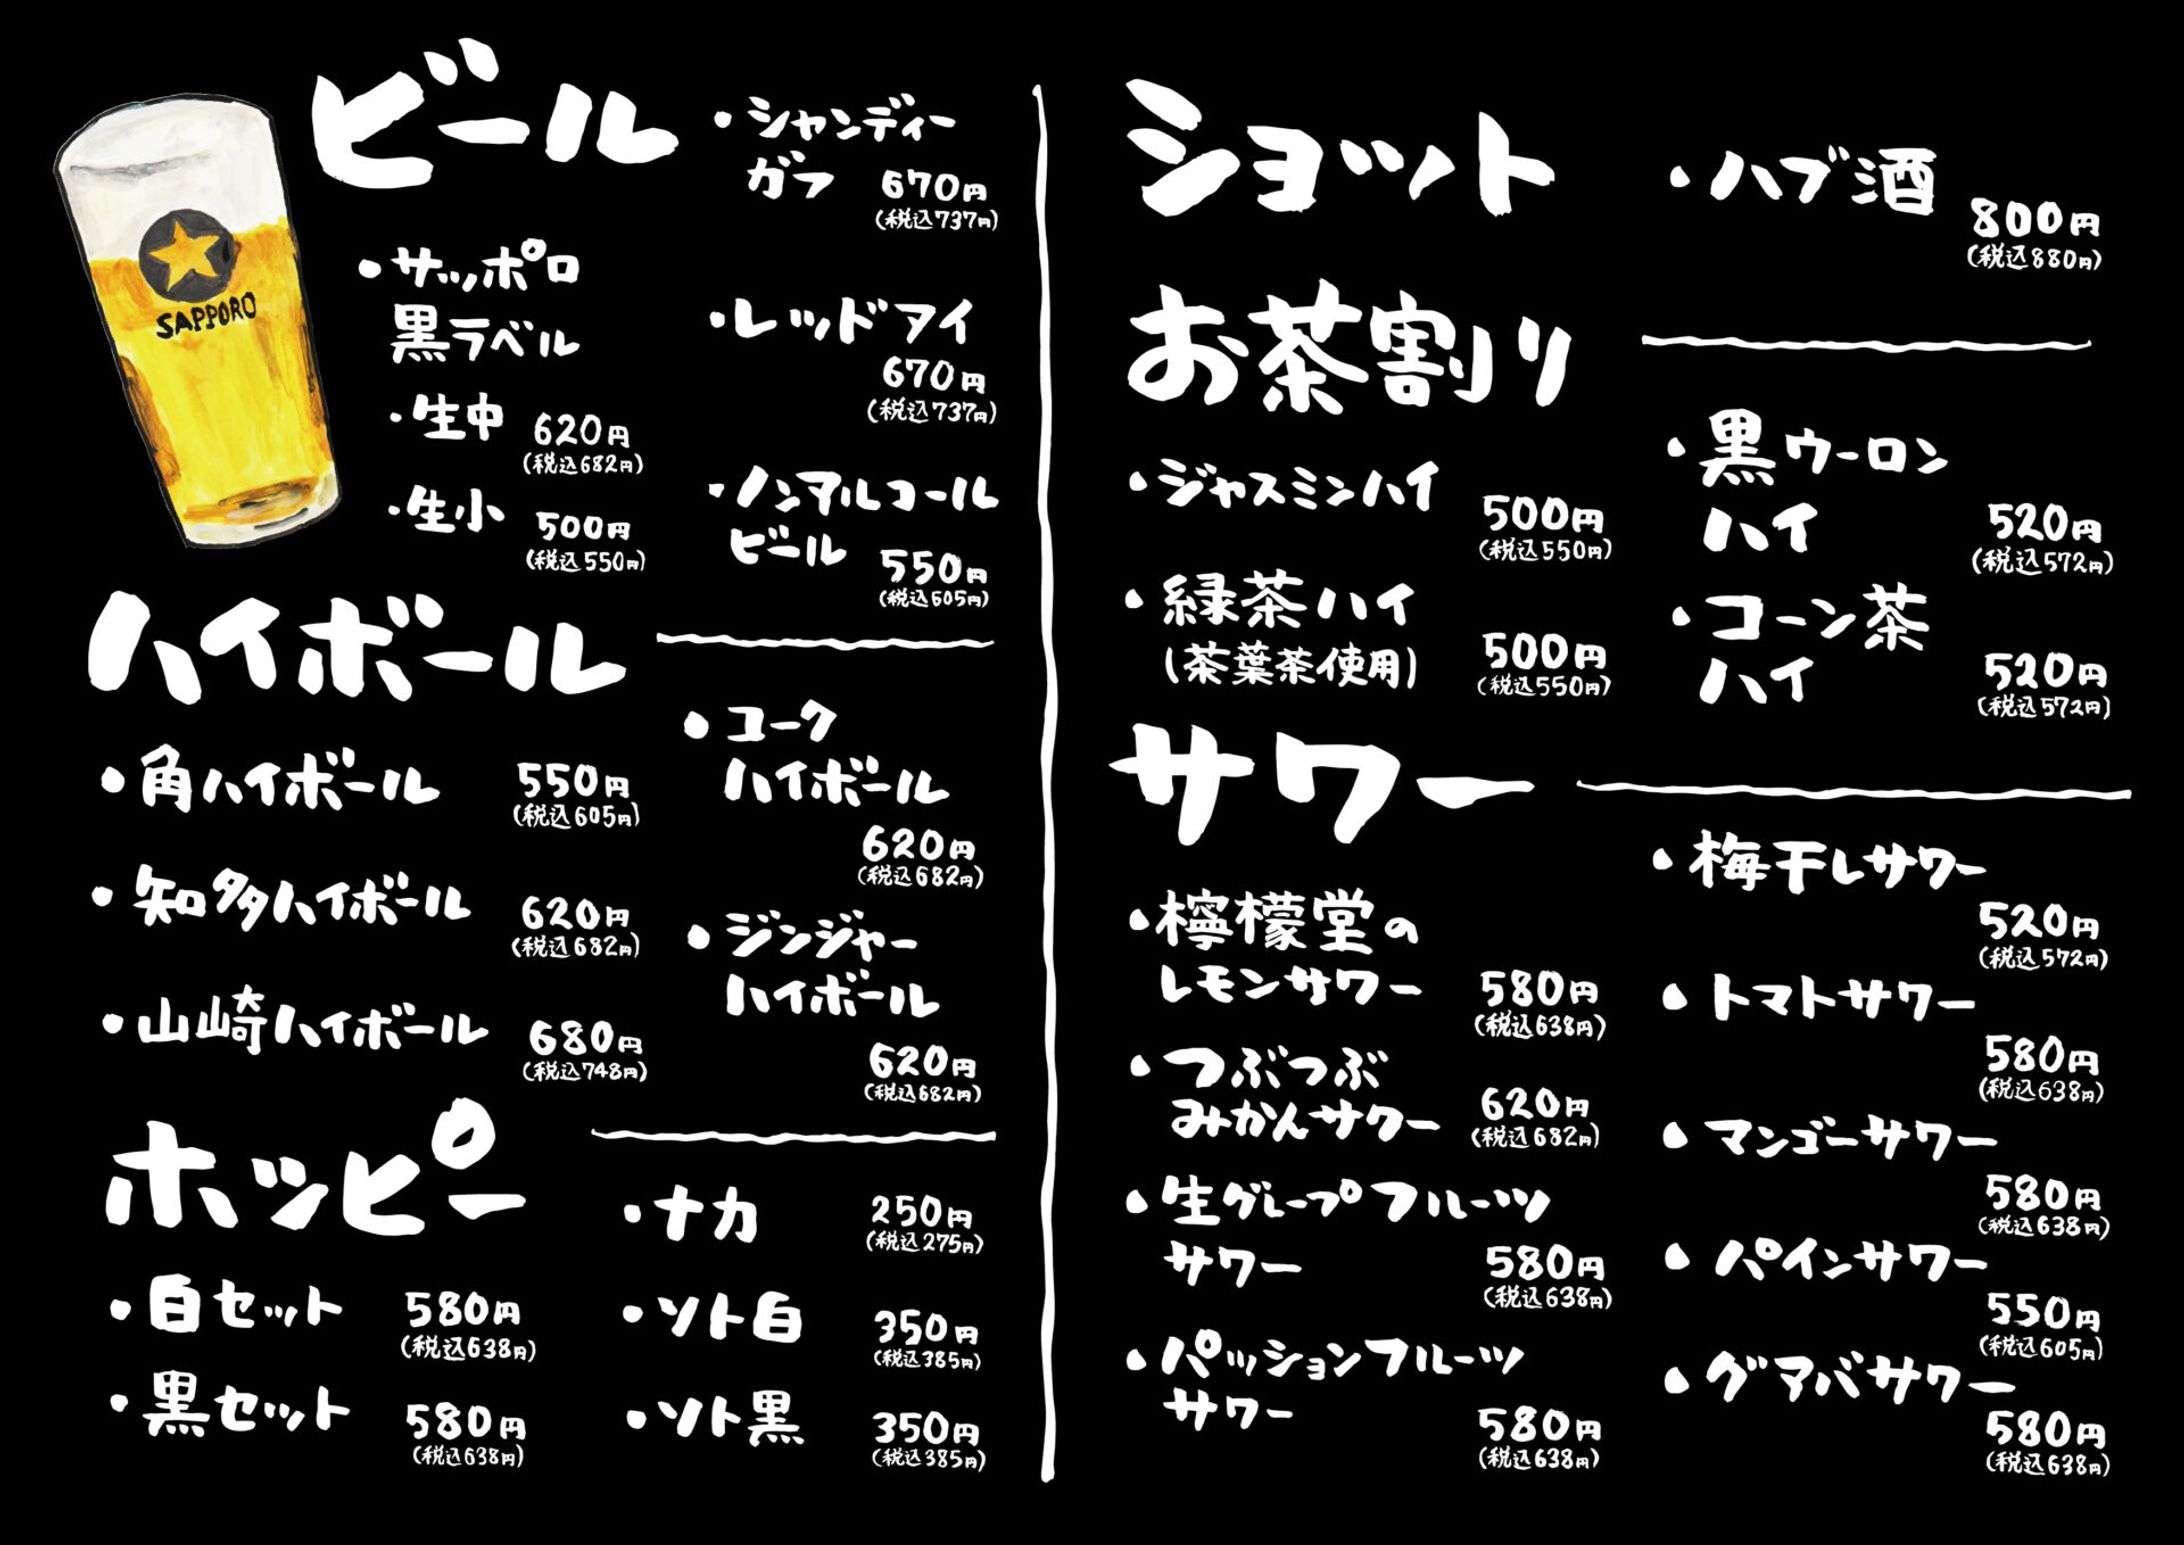 SAPPORO
ビール
・サッポロ
黒ラベル
・生中 620円
(税込682円)
・生小 500円
(税込550円)
・シャンディー
ガフ 670円
(税込737円)
・レッドアイ
670円
(税込737円)
・ノンアルコール
ビール 550円
(税込605円)
ハイボール
・角ハイボール 550円
(税込605円)
・知多ハイボール 620円
(税込682円)
・山崎ハイボール 680円
(税込748円)
・コーク
ハイボール
620円
(税込682円)
・ジンジャー
ハイボール
620円
(税込682円)
ホッピー
・白セット 580円
(税込638円)
・黒セット 580円
(税込638円)
・ナカ 250円
(税込275円)
・ソト白 350円
(税込385円)
・ソト黒 350円
(税込385円)
ショット
・ハブ酒 800円
(税込880円)
お茶割り
・ジャスミンハイ 500円
(税込550円)
・緑茶ハイ
(茶葉茶使用) 500円
(税込550円)
・黒ウーロン
ハイ 520円
(税込572円)
・コーン茶
ハイ 520円
(税込572円)
サワー
・檸檬堂の
レモンサワー 580円
(税込638円)
・つぶつぶ
みかんサワー 620円
(税込682円)
・生グレープフルーツ
サワー 580円
(税込638円)
・パッションフルーツ
サワー 580円
(税込638円)
・梅干しサワー
520円
(税込572円)
・トマトサワー
580円
(税込638円)
・マンゴーサワー
580円
(税込638円)
・パインサワー
550円
(税込605円)
・グァバサワー
580円
(税込638円)